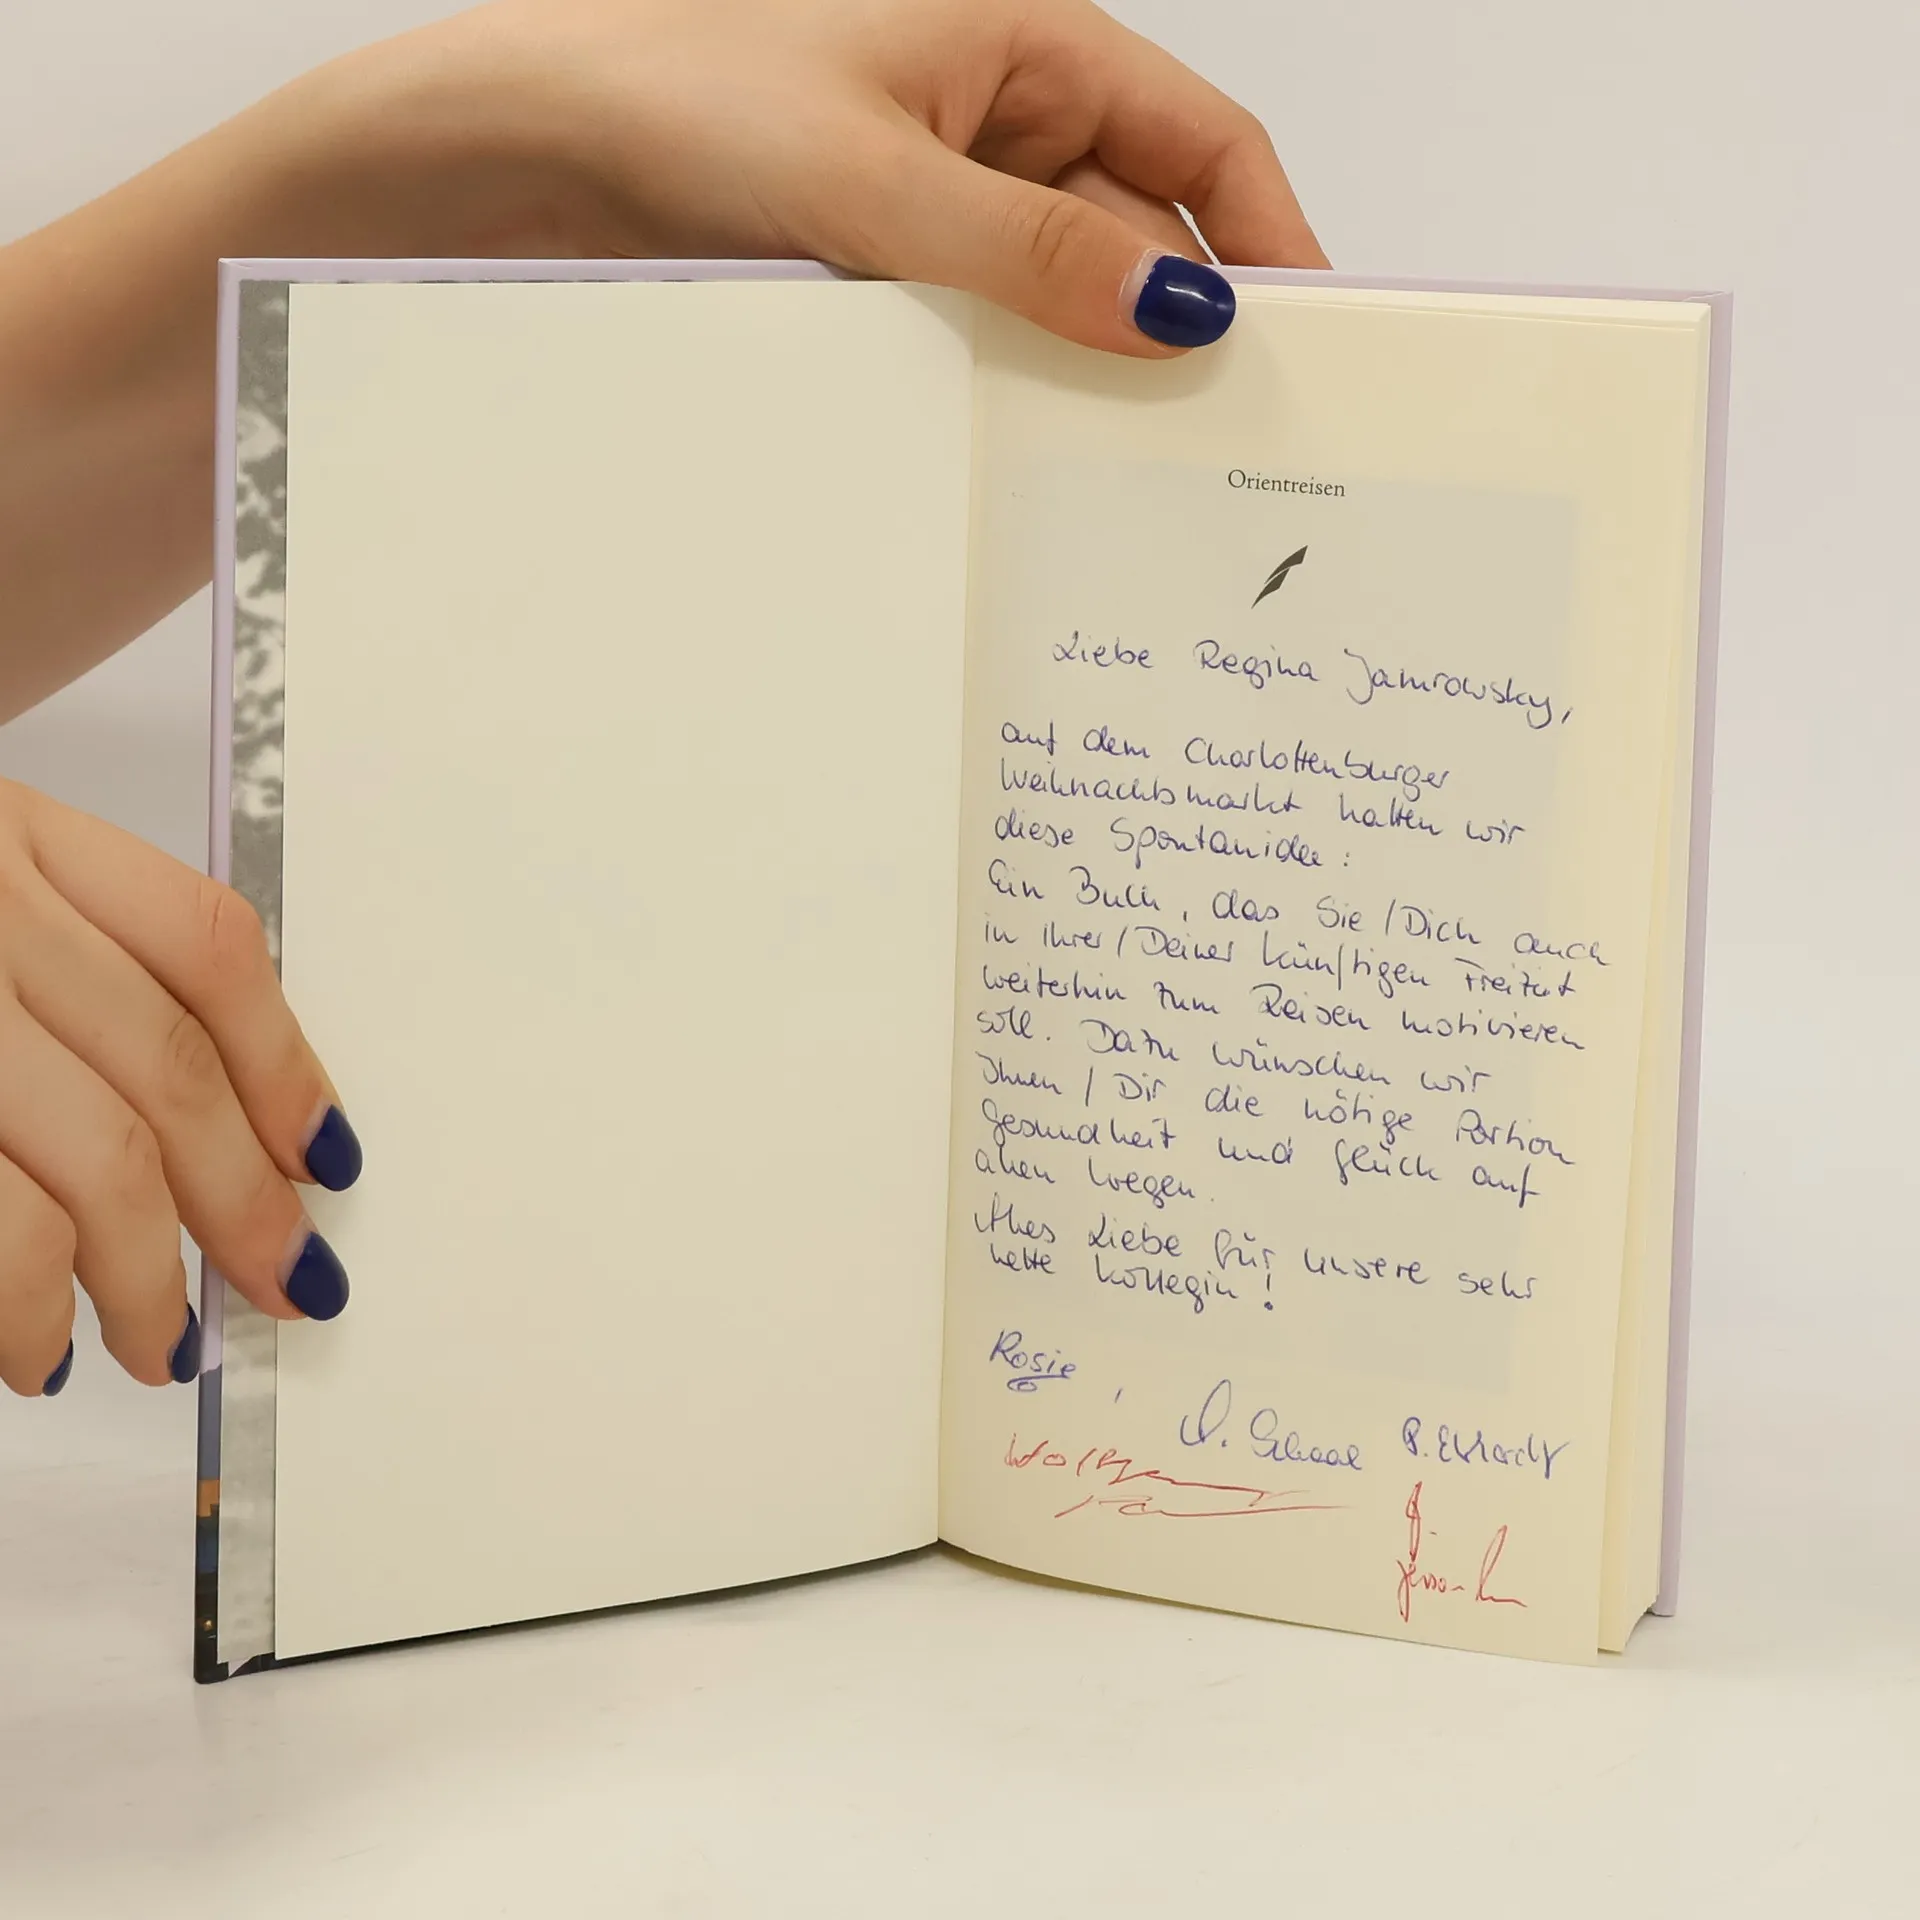 Orientreisen
Liebe Regina Jamrowsky,
auf dem Charlottenburger
Weihnachtsmarkt hatten wir
diese Spontanidee:
Ein Buch, das Sie/Dich auch
in Ihrer/Deiner künftigen Freizeit
weiterhin zum Reisen motivieren
soll. Dazu wünschen wir
Ihnen/Dir die nötige Portion
Gesundheit und Glück auf
allen Wegen.
Alles Liebe für unsere sehr
nette Kollegin!
Rosie,